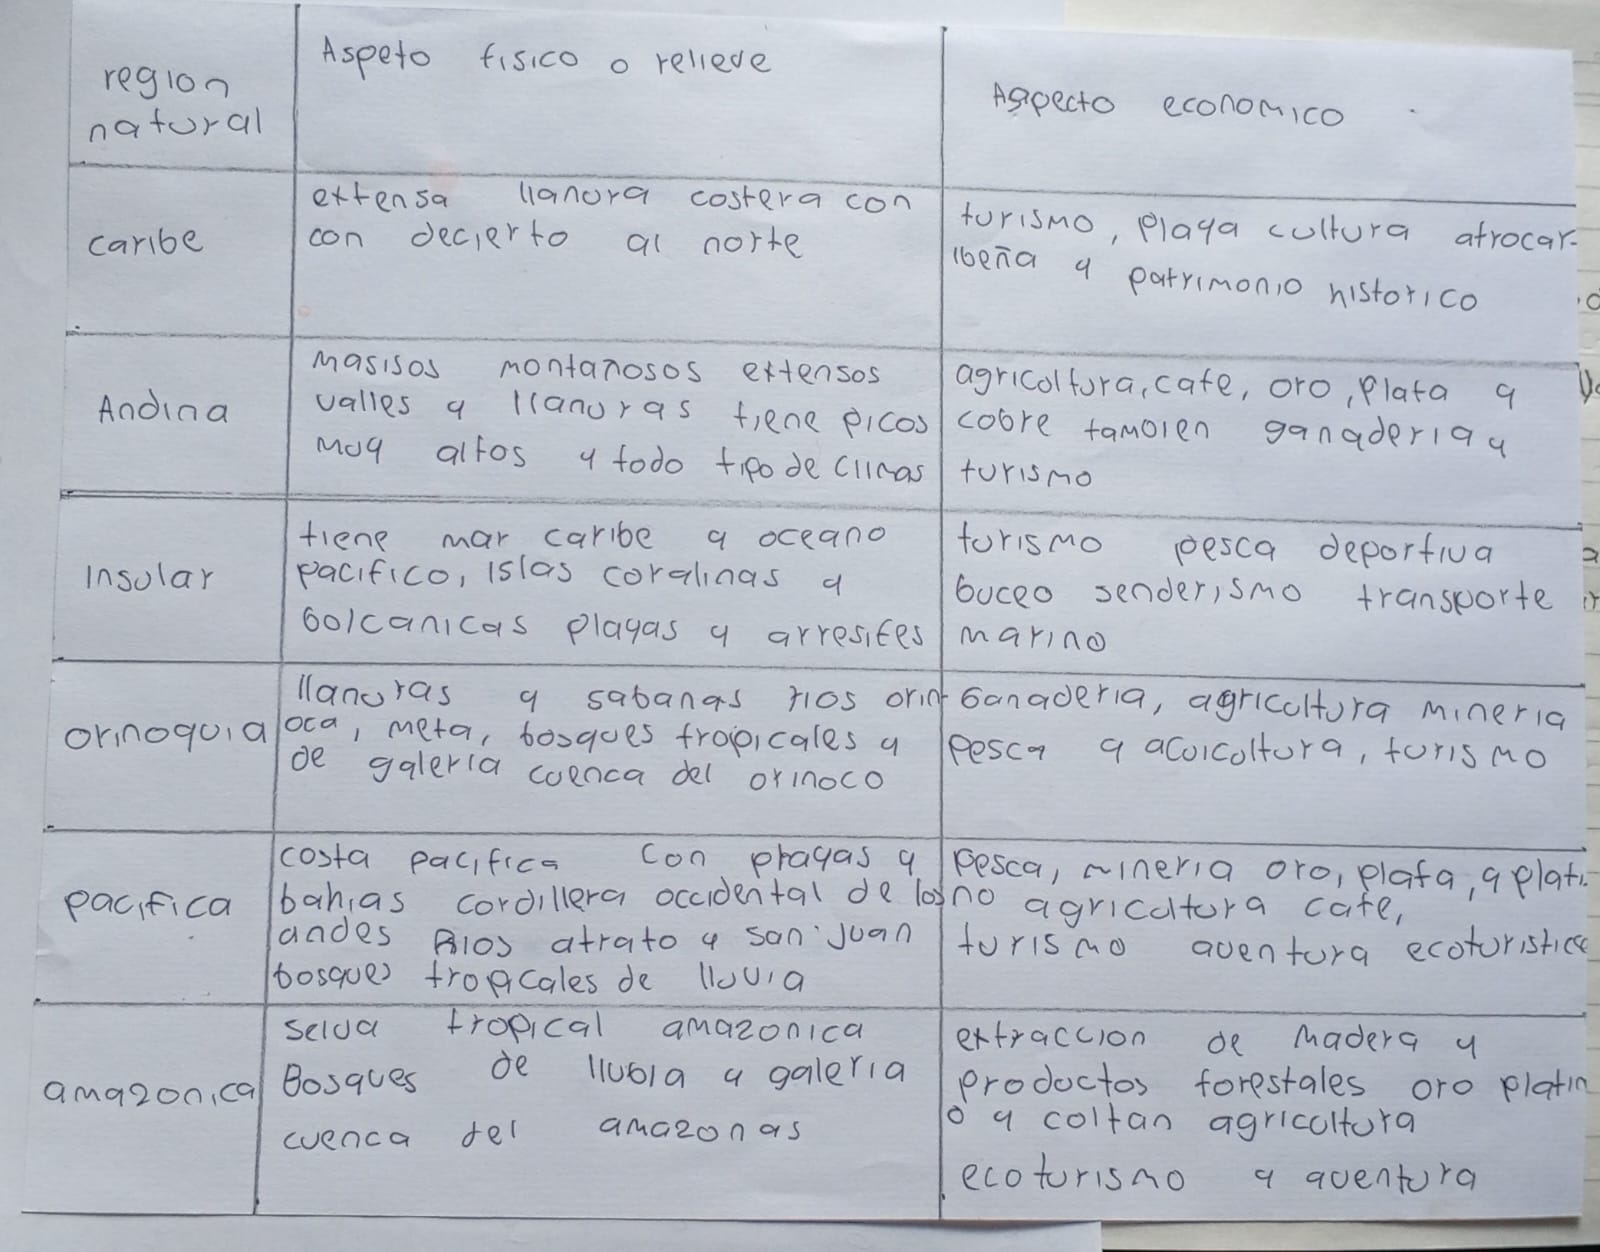 region
natural
Aspeto fisico o relieve
Aspecto economico
caribe
extensa llanura costera con
con decierto al norte
turismo, playa cultura afrocar-
ibeña y patrimonio historico
Andina
masisos montañosos extensos
valles y llanuras tiene picos
muy altos y todo tipo de climas
agricoltura, cafe, oro, plata y
cobre tambien ganaderia y
turismo
Insular
tiene mar caribe y oceano
pacifico, islas coralinas y
bolcanicas playas y arresifes
turismo pesca deportiva
buceo senderismo transporte
marino
orinoquia
llanuras y sabanas rios orin-
oca, meta, bosques tropicales y
de galeria cuenca del orinoco
Ganaderia, agricultura mineria
pesca y acuicoltura, turismo
pacifica
costa pacifica con playas y
bahias cordillera occidental de los
andes Rios atrato y san juan
bosques tropicales de lluvia
pesca, mineria oro, plata, y plati-
no agricultura cafe,
turismo aventura ecoturistico
amazonica
selva tropical amazonica
Bosques de llubia y galeria
cuenca del amazonas
extraccion de madera y
productos forestales oro platin
o y coltan agricultura
ecoturismo y aventura